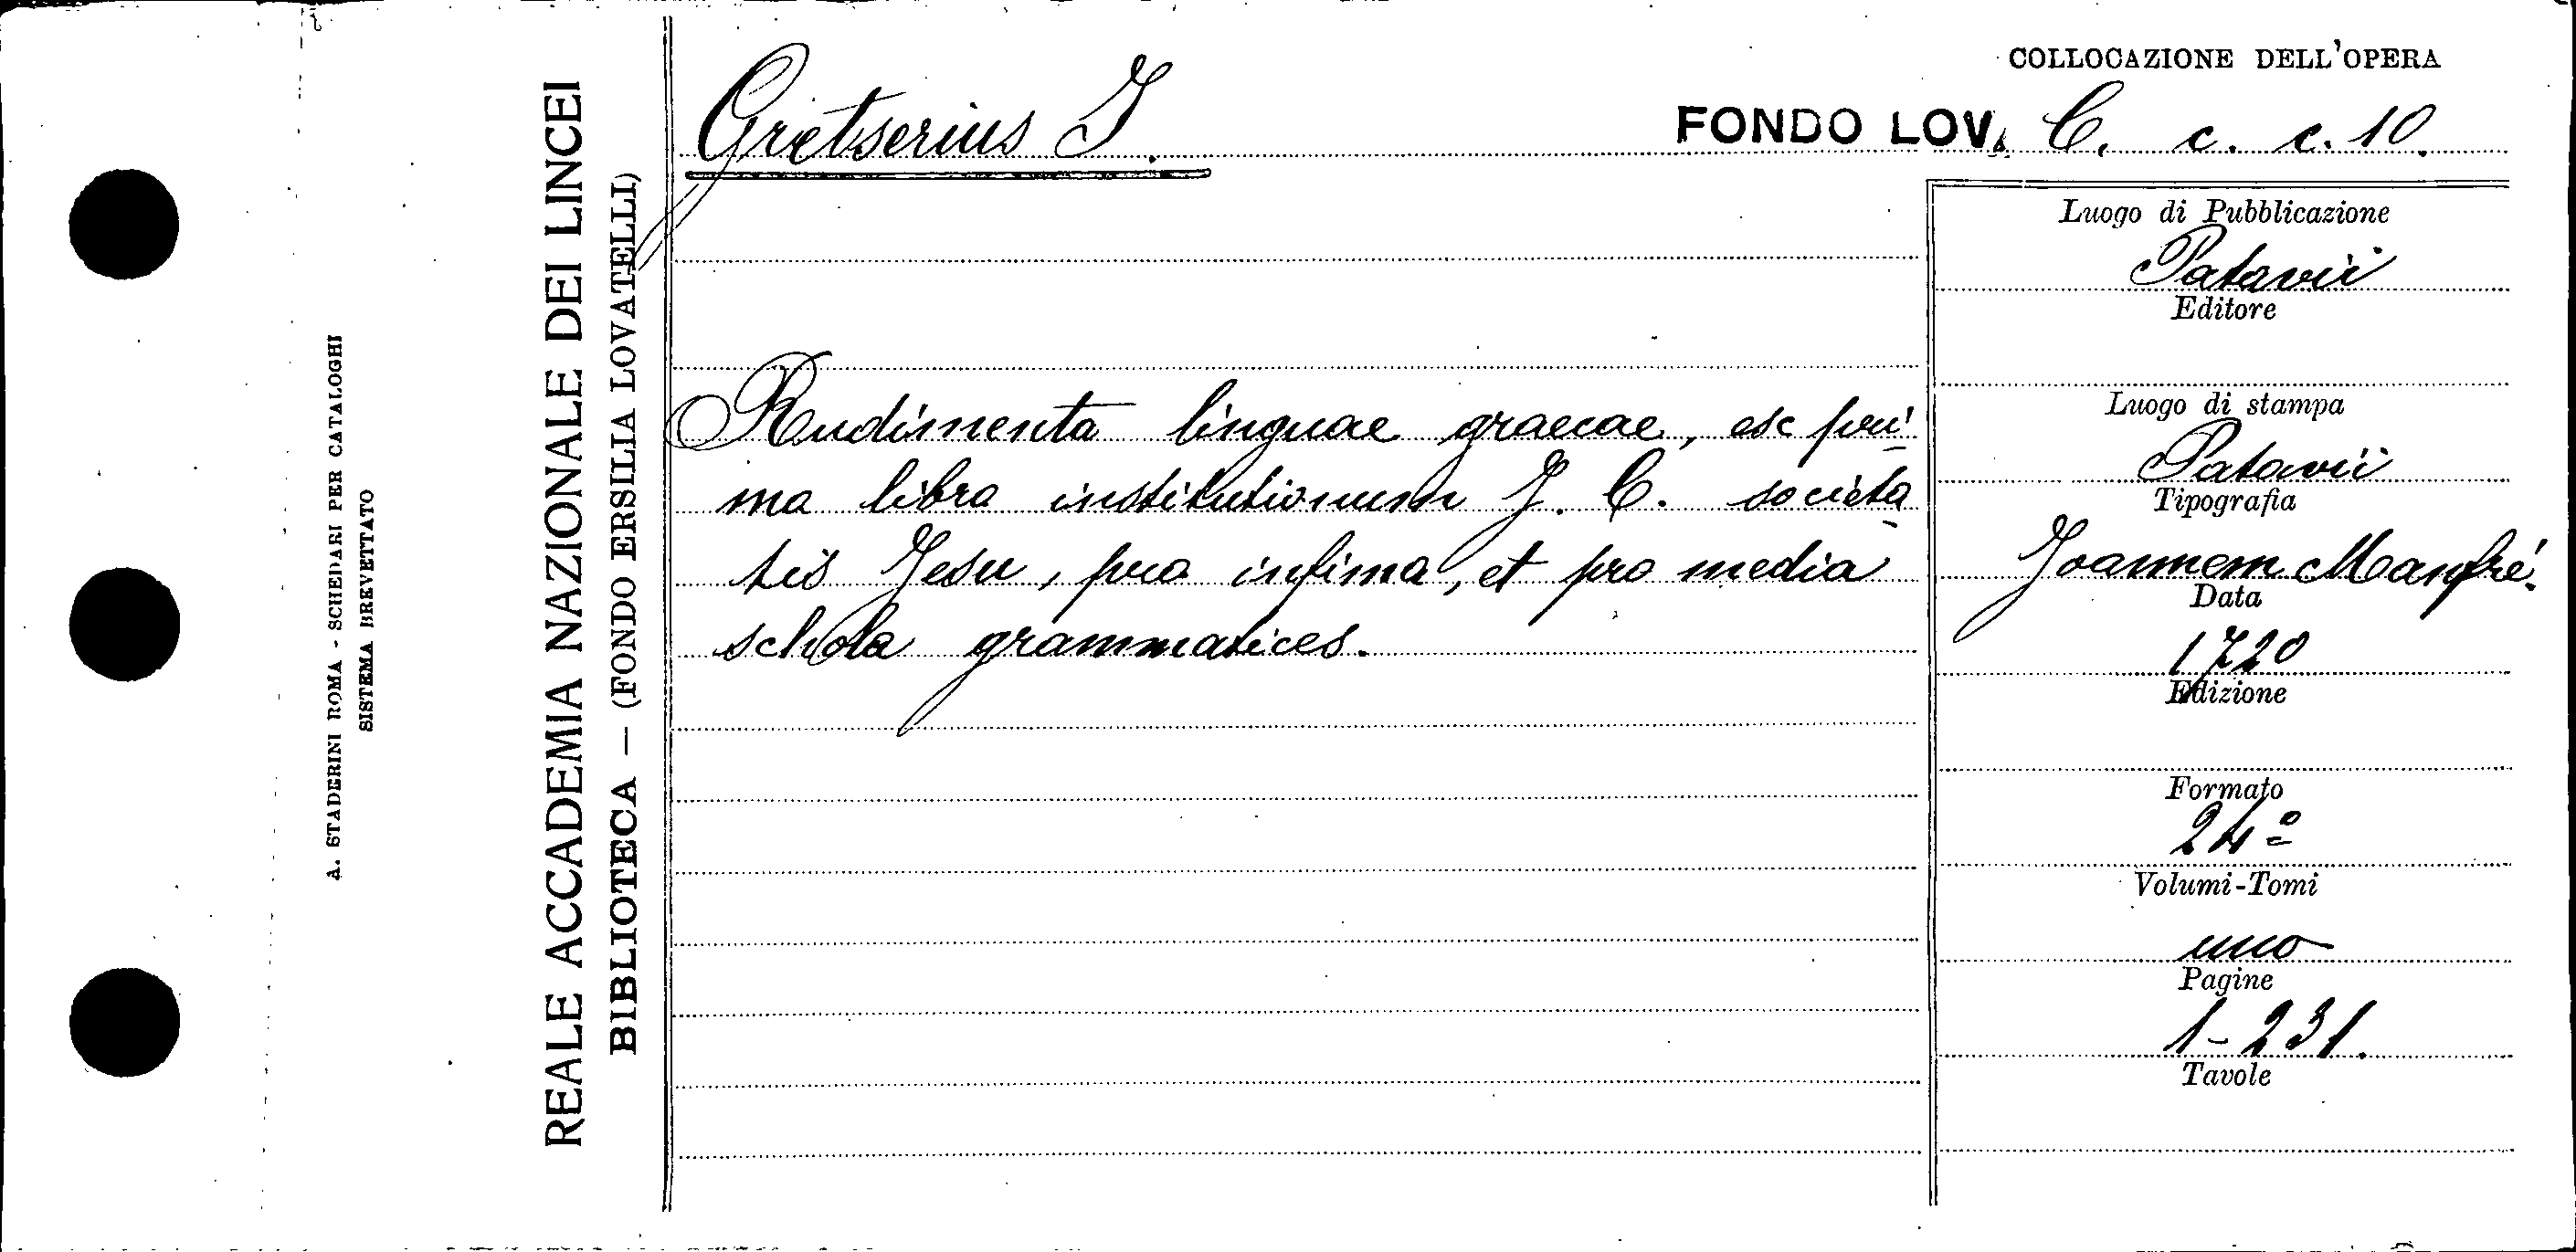 A. STADERINI ROMA - SCHEDARI PER CATALOGHI
SISTEMA BREVETTATO
REALE ACCADEMIA NAZIONALE DEI LINCEI
BIBLIOTECA — (FONDO ERSILIA LOVATELLI)
Gretserius J.
COLLOCAZIONE DELL'OPERA
FONDO LOV. C. c. c. 10.
Rudimenta linguae graecae, ex pri-
mo libro institutionum J. G. societa-
tis Jesu, pro infima, et pro media
schola grammatices.
Luogo di Pubblicazione
Patavii
Editore
Luogo di stampa
Patavii
Tipografia
Joannem Manfrè.
Data
1720
Edizione
Formato
24º
Volumi-Tomi
uno
Pagine
1-231.
Tavole